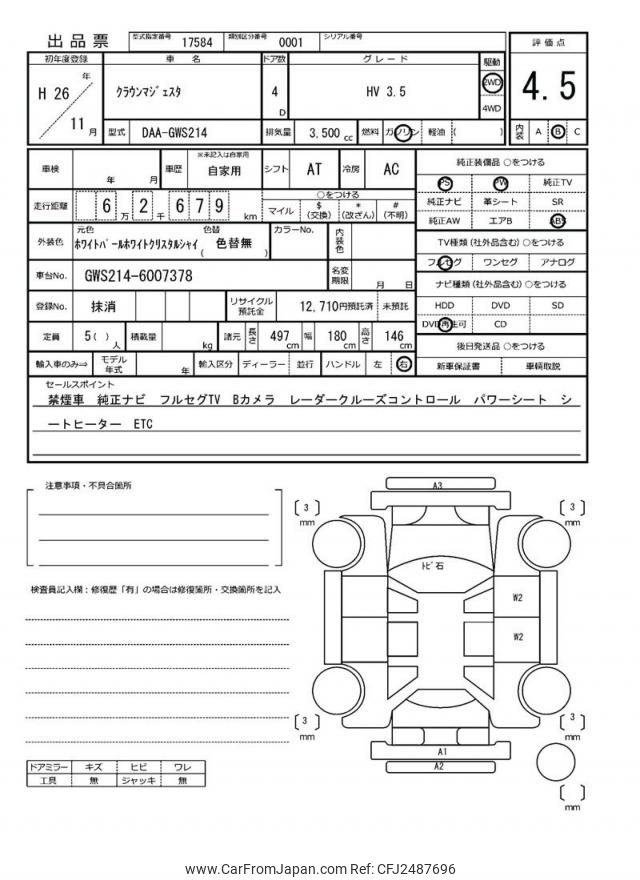 出品票
型式指定番号 17584 類別区分番号 0001 シリアル番号
初年度登録 車 名 ドア数 グレード 駆動 評価点
H 26 年 11 月
クラウンマジェスタ 4 D HV 3.5 2WD 4WD 4.5
型式 DAA-GWS214 排気量 3,500 cc 燃料 ガソリン 軽油 ( ) 内装 A B C
車検 年 月 車歴 ※未記入は自家用 自家用 シフト AT 冷房 AC
走行距離 6万2千679 km
○をつける
マイル $(交換) *(改ざん) #(不明)
外装色 元色 色替
ホワイトパールホワイトクリスタルシャイ ( 色替無 ) カラーNo. 内装色
車台No. GWS214-6007378 名変期限 月 日
登録No. 抹消 リサイクル預託金 12,710円預託済 未預託
定員 5( )人 積載量 kg 諸元 長さ 497cm 幅 180cm 高さ 146cm
輸入車のみ⇒ モデル年式 年 輸入区分 ディーラー 並行 ハンドル 左 右
純正装備品 ○をつける
PS PW 純正TV
純正ナビ 革シート SR
純正AW エアB ABS
TV種類(社外品含む)○をつける
フルセグ ワンセグ アナログ
ナビ種類(社外品含む)○をつける
HDD DVD SD
DVD再生可 CD
後日発送品 ○をつける
新車保証書 車輌取説
セールスポイント
禁煙車 純正ナビ フルセグTV Bカメラ レーダークルーズコントロール パワーシート シ
ートヒーター ETC
注意事項・不具合箇所
検査員記入欄:修復歴「有」の場合は修復箇所・交換箇所を記入
ドアミラー キズ ヒビ ワレ
工具 無 ジャッキ 無
A3
[3] mm
[3] mm
トビ石
W2
W2
[3] mm
[3] mm
A1
A2
[ ] mm
www.CarFromJapan.com Ref: CFJ2487696